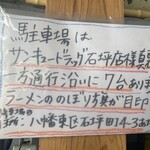 駐車場は
サンキュードラッグ石坪店様裏
一方通行沿いに7台あり
ラーメンののぼり旗が目印
八幡東区石坪町14-3